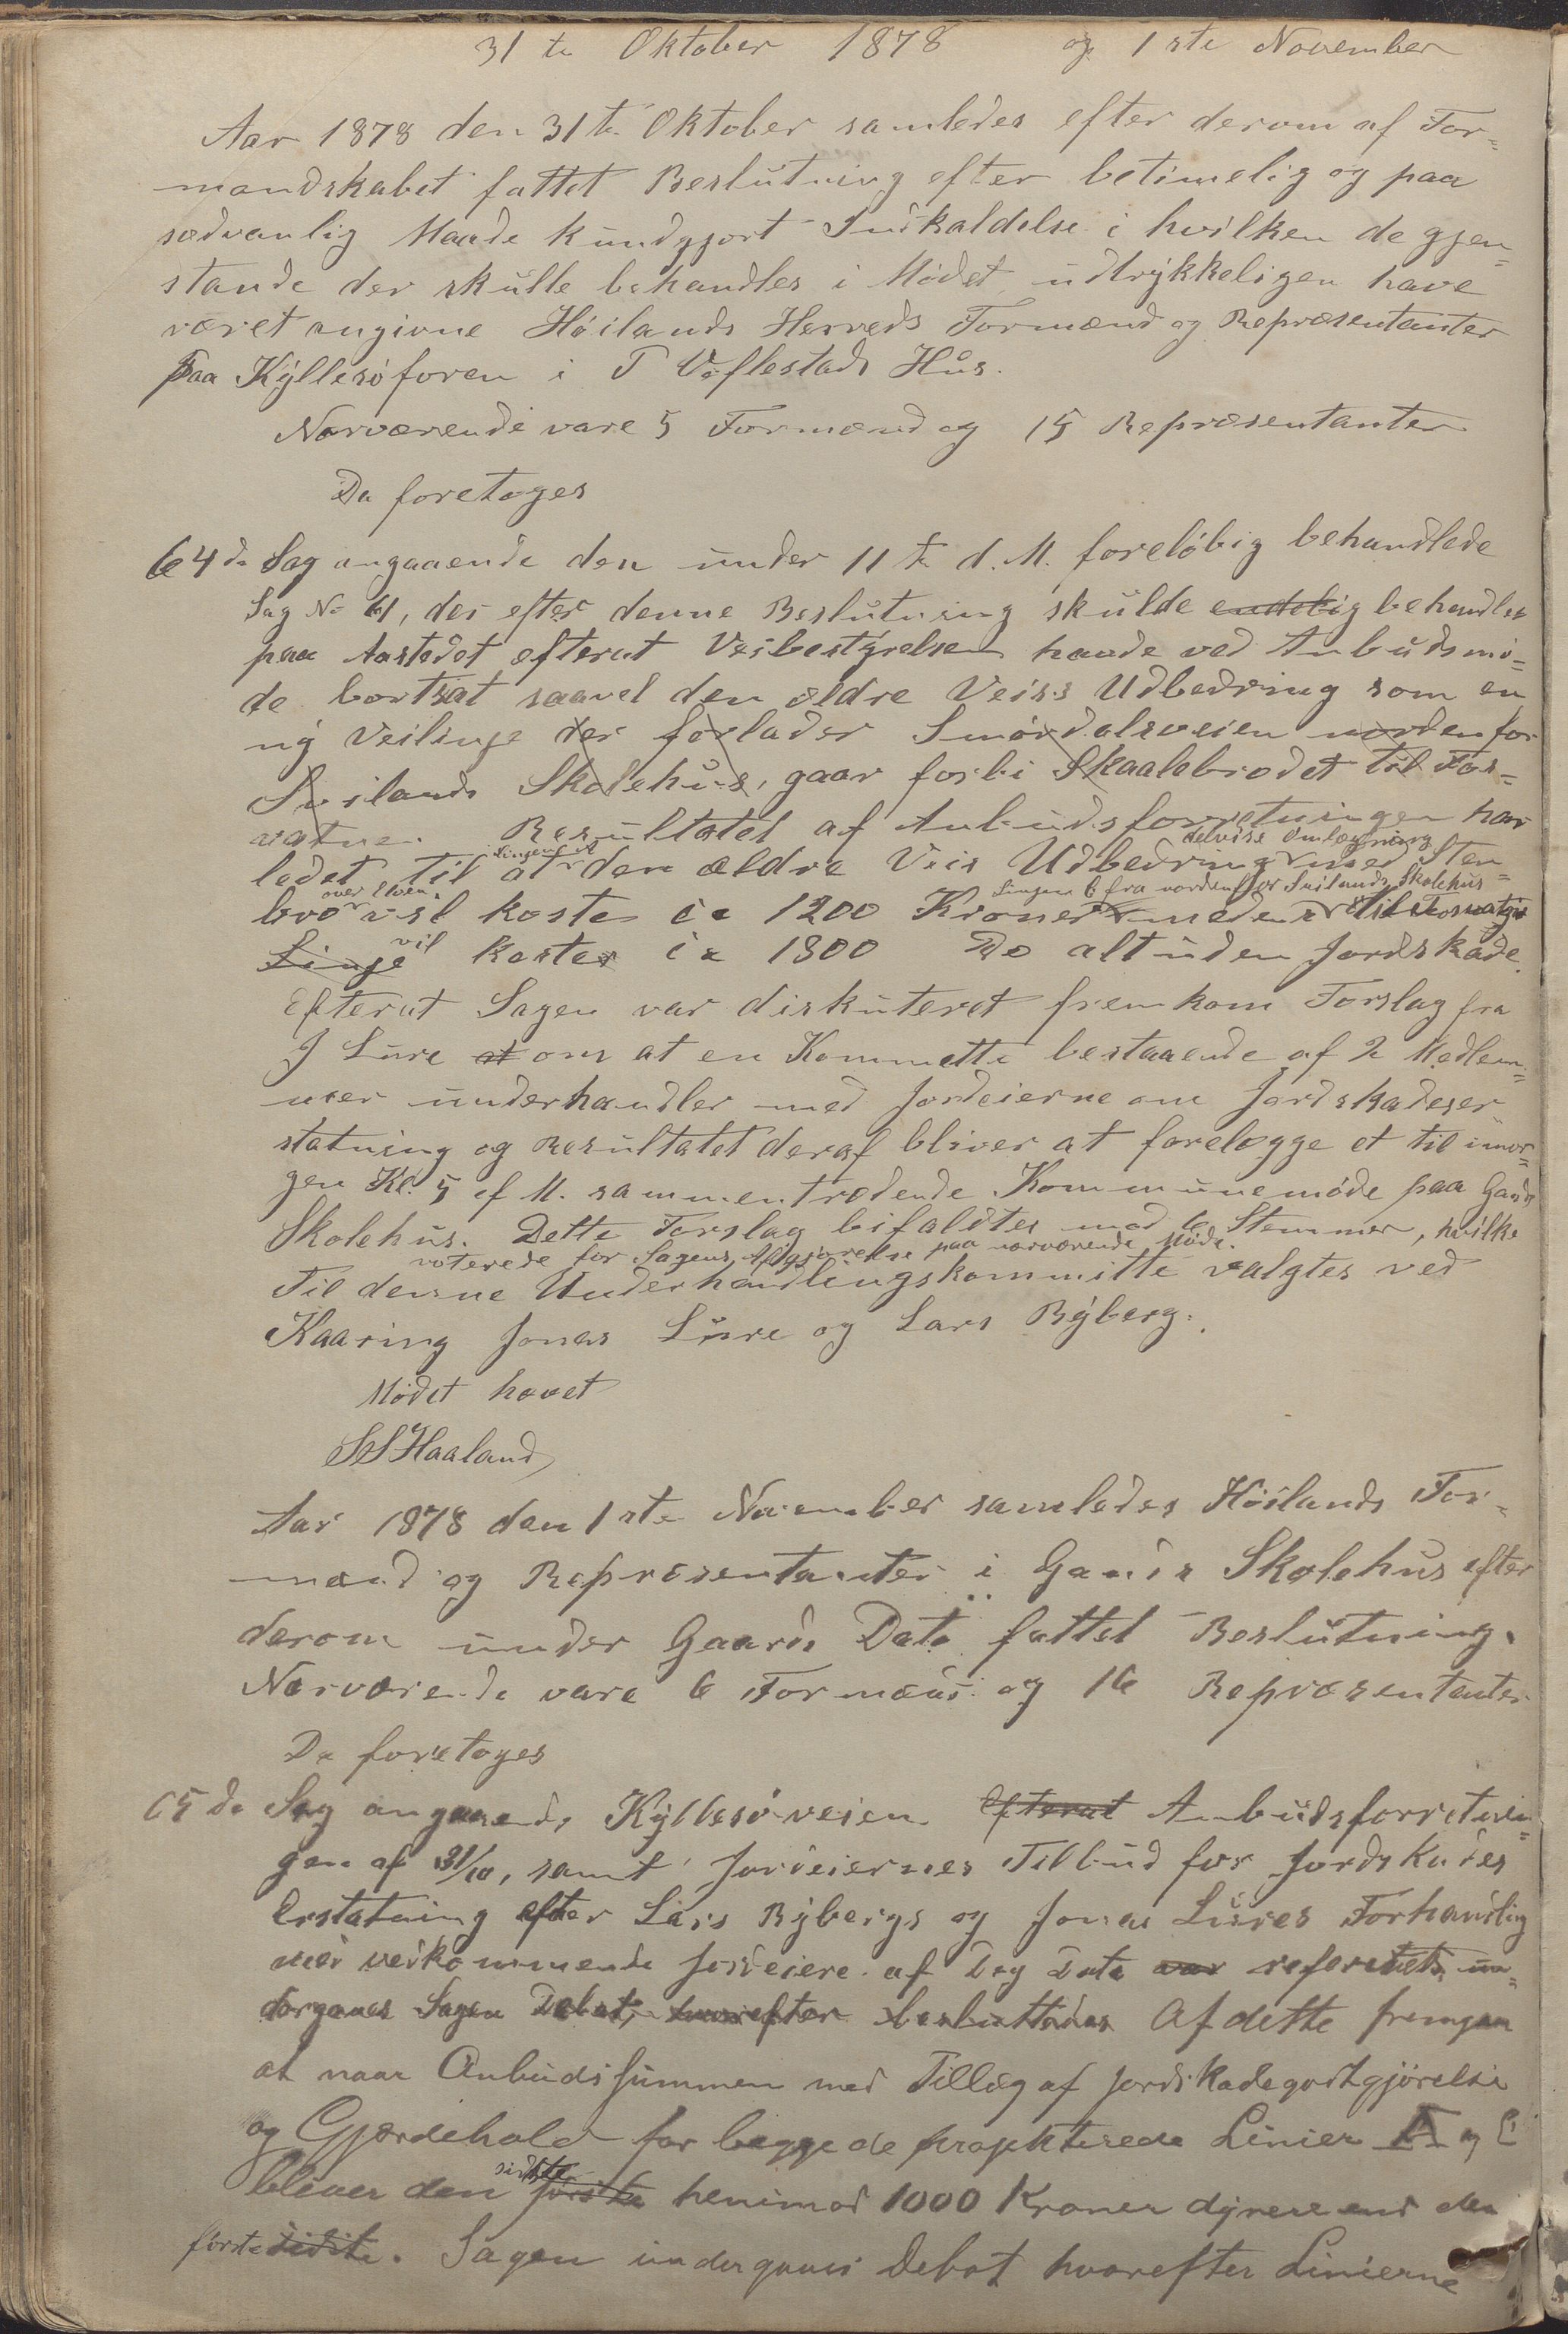 31te Oktober 1878 og 1ste November
Aar 1878 den 31te Oktober samledes efter derom af For=
mandskabet fattet Beslutning efter betimelig og paa
sædvanlig Maade kundgjort Indkaldelse i hvilken de gjen=
stande der skulle behandles i Mødet udtrykkeligen have
været angivne Høilands Herreds Formænd og Repræsentanter
paa Kyllesøforen i T Voflestads Hus.
Nærværende vare 5 Formænd og 15 Repræsentanter
Da foretoges
64de Sag angaaende den under 11te d. M. foreløbig behandlede
Sag No 61, der efter denne Beslutning skulde endelig behandles
paa Aastedet efterat Veibestyrelsen havde ved Anbudsmø=
de bortsat saavel den ældre Veis Udbedring som en
ny Veilinje der forlader Smørdalsveien nordenfor
Svilands Skolehus, gaar forbi Skaalebrødet til Fos=
vatne. Resultatet af Anbudsforretningen har
Linjen A delvise Omlægning
ledet til at den ældre Veis Udbedring med Sten=
over Elven Linjen B fra nordenfor Svilands Skolehus
bro vil koste ca 1200 Kroner medens til
vil
Linje koster ca 1800 Do alt uden Jordskade.
Efterat Sagen var diskuteret fremkom Forslag fra
J Lure at om at en Kommitte bestaaende af 2 Medlem=
mer underhandler med Jordeierne om Jordskadeser
statning og Resultatet deraf bliver at forelægge et til imor=
gen Kl. 5 ef M. sammentrædende Kommunemøde paa Gands
Skolehus. Dette Forslag bifaldtes mod 6 Stemmer, hvilke
voterede for Sagens Afgjørelse paa nærværende Møde.
Til denne Underhandlingskommitte valgtes ved
Kaaring Jonas Lure og Lars Ryberg.
Mødet hævet
SSHaaland
Aar 1878 den 1ste November samledes Høilands For=
mænd og Repræsentanter i Gands Skolehus efter
derom under Gaards Dato fattet Beslutning.
Nærværende vare 6 Formænd og 16 Repræsentanter
Da foretoges
65de Sag angaaende Kyllesøveien. Efterat Anbudsforretnin=
gen af 31/10, samt Jordeiernes Tilbud for Jordskades
Erstatning efter Lars Rybergs og Jonas Lures Forhandlig
med vedkommende Jordeiere af Dags Dato var refereret, un=
dergaaes Sagen Debat, hvorefter besluttedes Af dette fremgaar
at naar Anbudssummen med Tillæg af Jordskadegodtgjørelse
og Gjærdehold for begge de projekterede Linier A og
sidste
bliver den første henimod 1000 Kroner dyrere end den
første sidste. Sagen undergaaes Debat hvorefter Linierne